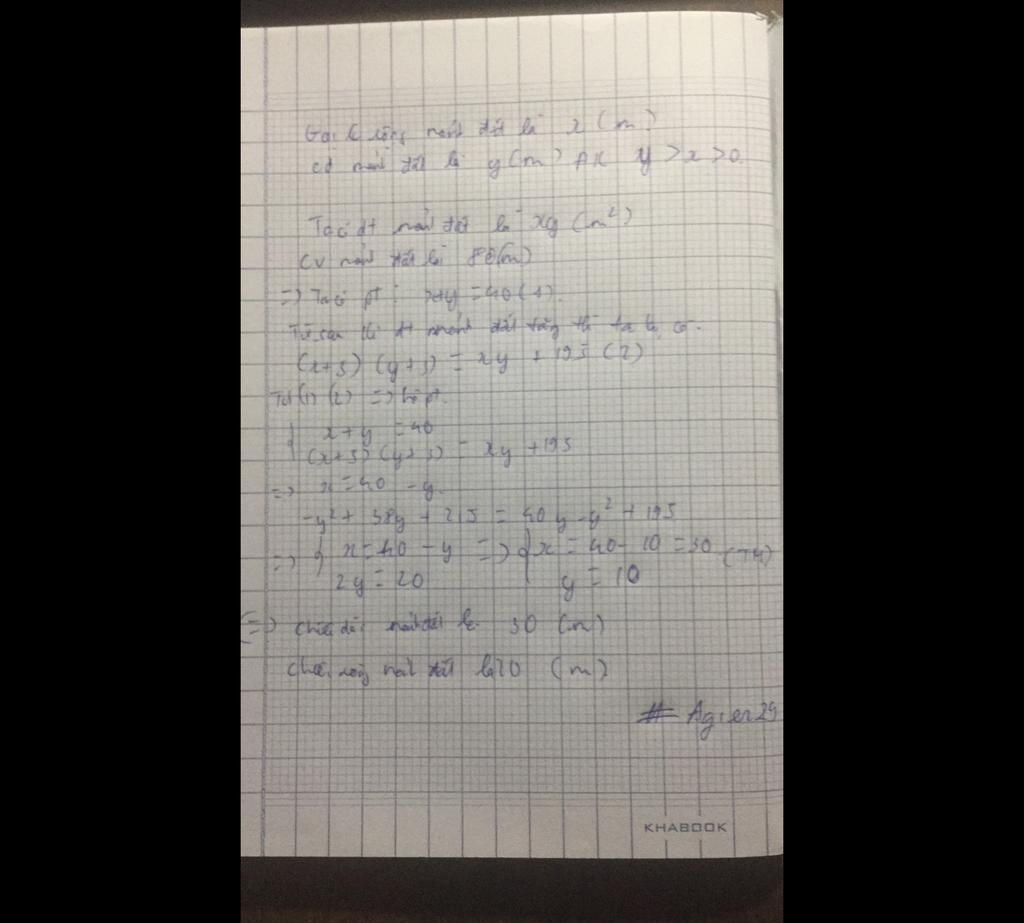 Gọi c rộng mảnh đất là x (m)
cd mảnh đất là y(m) ĐK y > x > 0.
Ta có dt mảnh đất là xy (m²)
CV mảnh đất là 80(m)
=> Ta có pt : x+y = 40 (1).
khi dt mảnh đất tăng thì ta có.
(x+3) (y+5) = xy + 195 (2)
Từ (1) (2) => hệ pt.
x + y = 40
(x+3) (y+5) = xy + 195
=> x = 40 - y.
-y² + 38y + 215 = 40y - y² + 195
=> { x = 40 - y => { x = 40 - 10 = 30 (TM)
2y = 20 y = 10
=> chiều dài mảnh đất là 30 (m)
chiều rộng mảnh đất là 10 (m)
# Agier29
KHABOOK